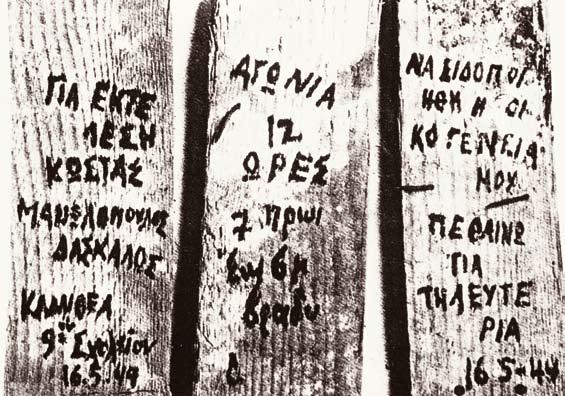 ΓΙΑ ΕΚΤΕ
ΛΕΣΗ
ΚΩΣΤΑΣ
ΔΑΣΚΑΛΟΣ
ΚΑΛΛΙΘΕΑ
9ον Σχολείον
16.5-44
ΑΓΩΝΙΑ
12
ΩΡΕΣ
7 πρωι
έως 6 μ
βραδυ
ΝΑ ΕΙΔΟΠΟΙ
ΗΘΗ Η ΟΙ
ΚΟΓΕΝΕΙΑ
ΜΟΥ
ΠΕΘΑΙΝΩ
ΓΙΑ
ΤΗ ΛΕΥΤΕ
ΡΙΑ
16.5-44